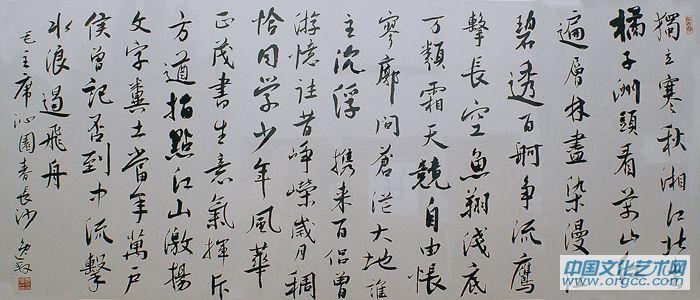 獨立寒秋湘江北
橘子洲頭看萬山
遍層林盡染漫江
碧透百舸争流鷹
擊長空魚翔淺底
万類霜天競自由悵
寥廓問蒼茫大地誰
主沉浮携来百侣曾
游憶往昔崢嶸歲月稠
恰同學少年風華
正茂書生意氣揮斥
方遒指點江山激揚
文字糞土當年萬户
侯曾記否到中流擊
水浪遏飛舟
毛主席沁園春長沙
中国文化艺术网
www.orgcc.com